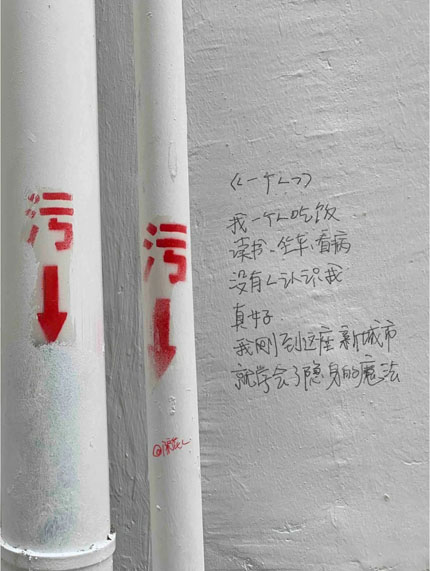 污
污
《一个人》
我一个人吃饭
读书、坐车、看病
没有人认识我
真好
我刚到这座新城市
就学会了隐身的魔法